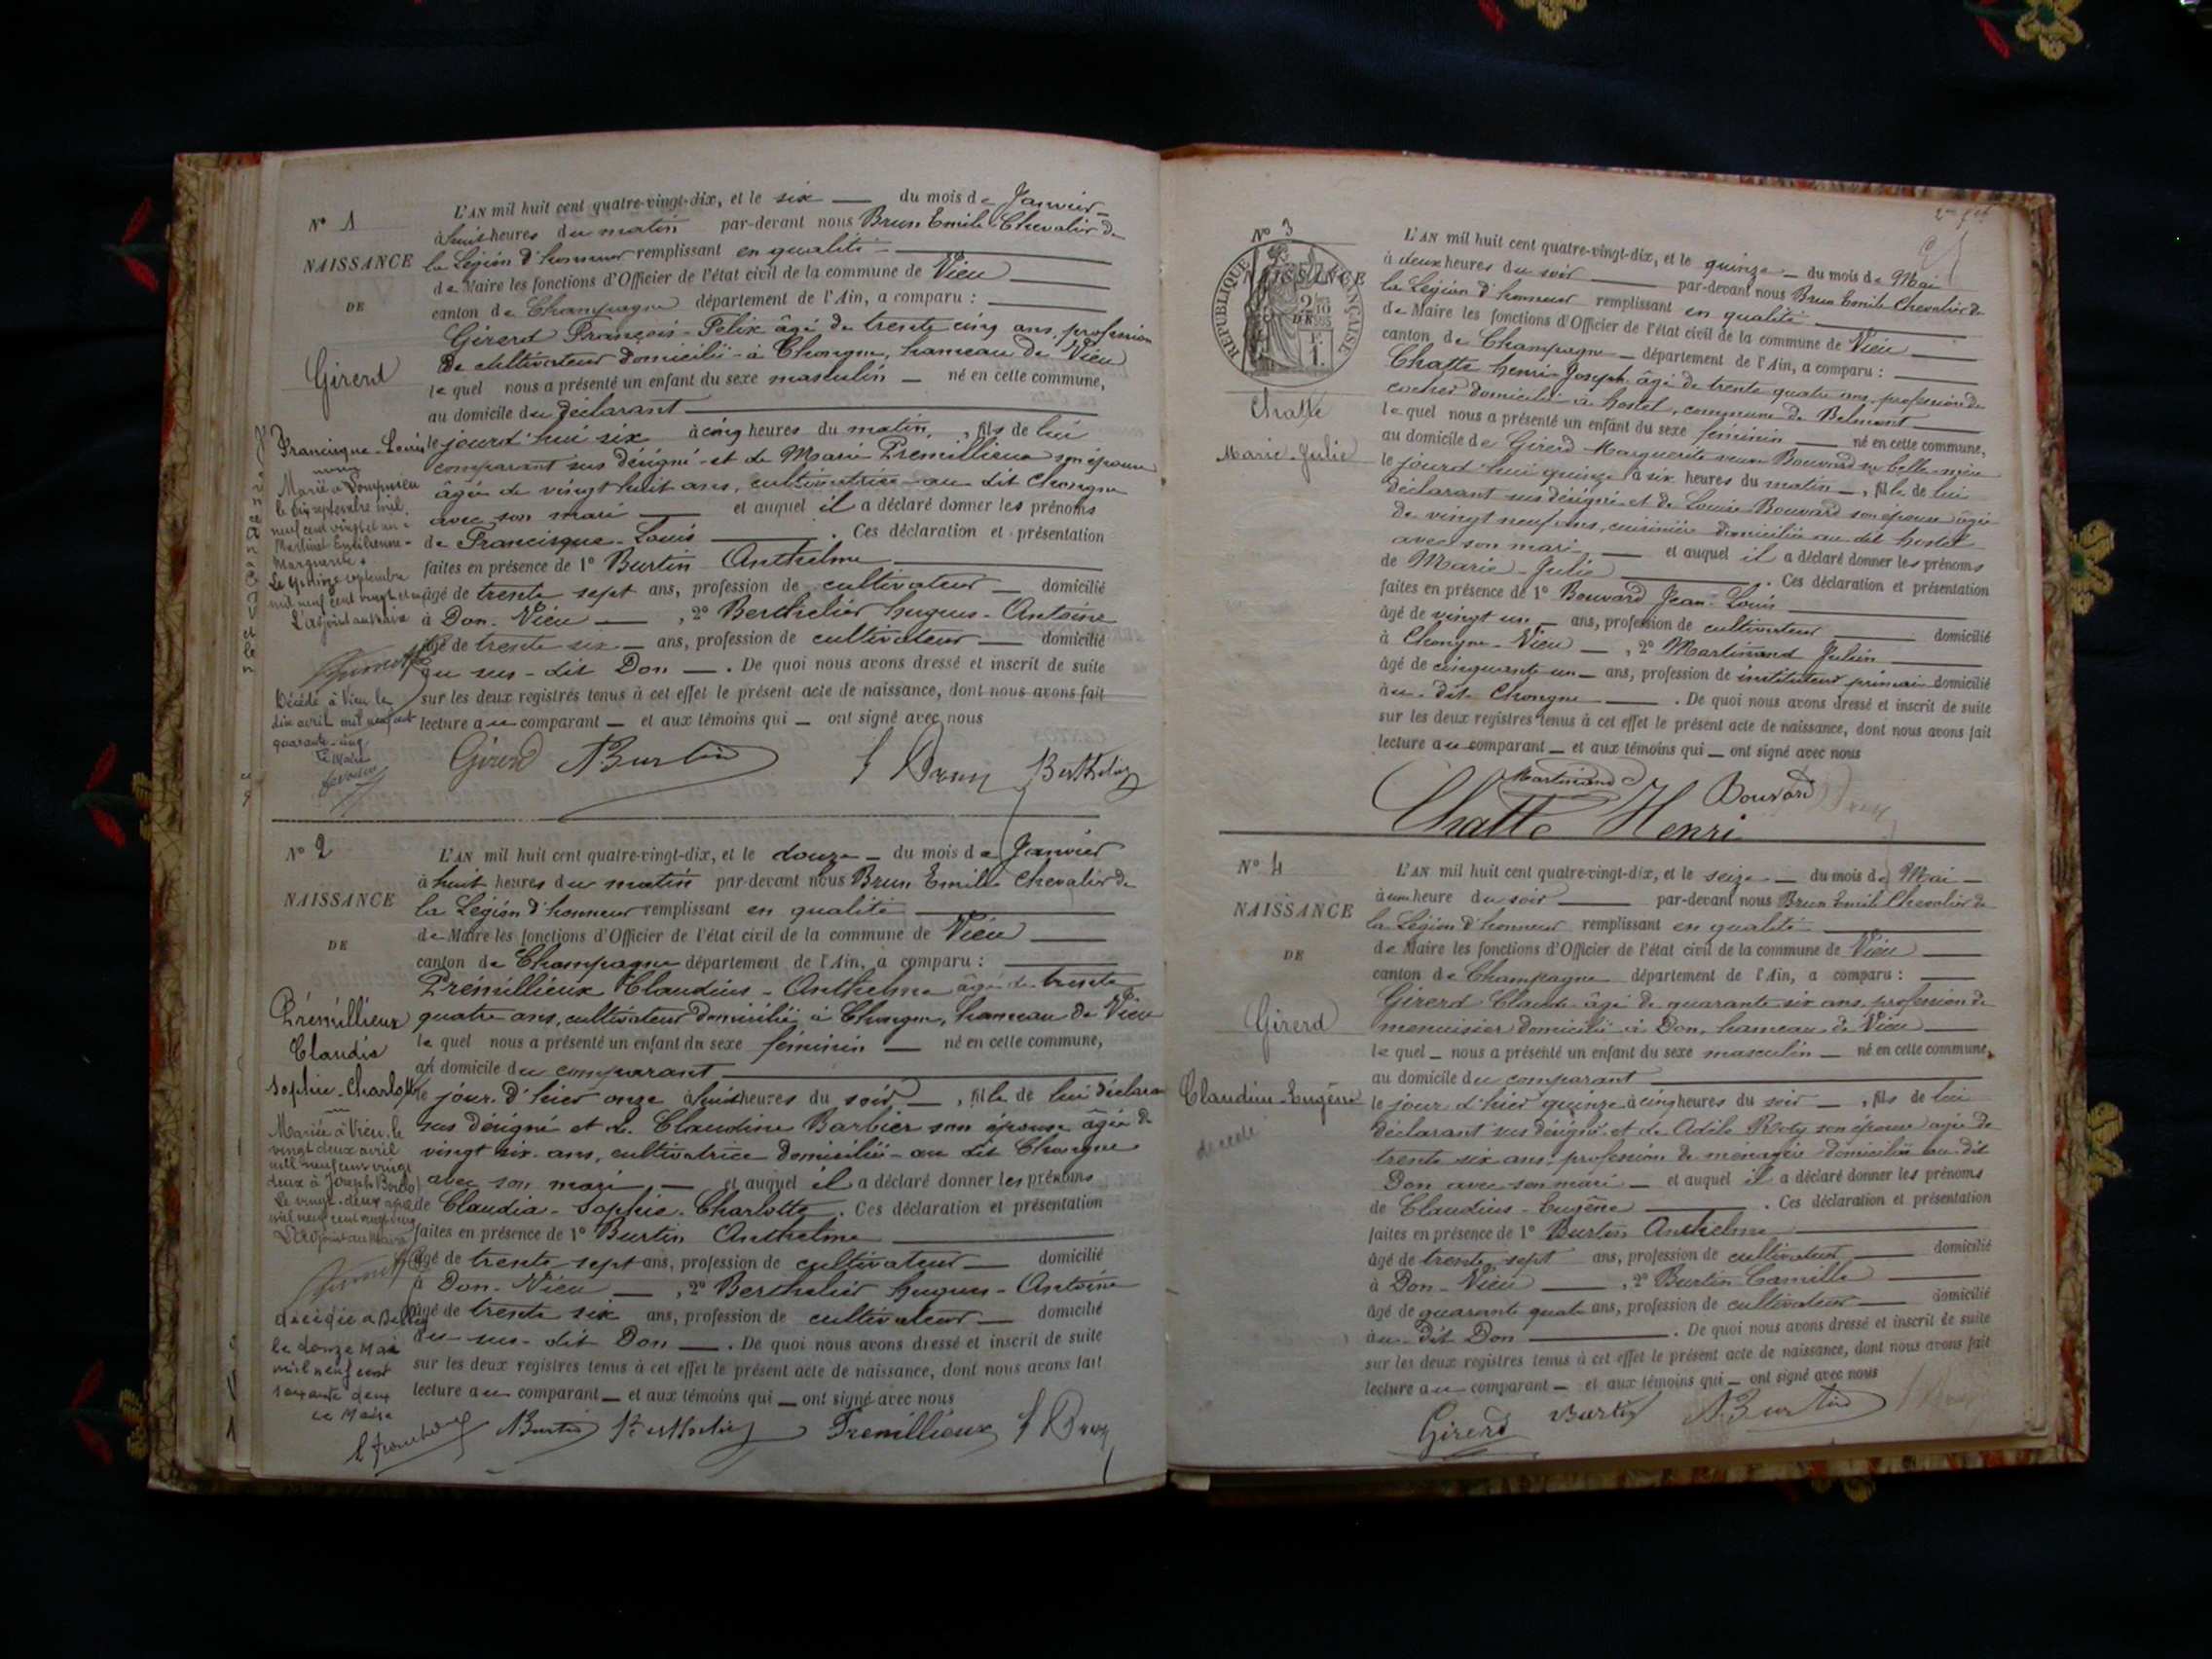 N° 1
NAISSANCE
DE
Girerd
Francisque-Louis
Marié à
le dix septembre mil
neuf cent vingt et un à
Martinet Emilienne-
Marguerite.
Le quinze septembre
mil neuf cent vingt et un
L'adjoint au Maire
Décédé à Vieu le
dix avril mil neuf cent
quarante-cinq
Le Maire
L'AN mil huit cent quatre-vingt-dix, et le six — du mois de Janvier —
à huit heures du matin par-devant nous Brun Emile Chevalier de
la Légion d'honneur remplissant en qualité —
de Maire les fonctions d'Officier de l'état civil de la commune de Vieu —
canton de Champagne département de l'Ain, a comparu : —
Girerd François-Félix âgé de trente cinq ans, profession
de cultivateur domicilié à Chongne, hameau de Vieu
lequel nous a présenté un enfant du sexe masculin — né en cette commune,
au domicile du déclarant —
le jourd'hui six à cinq heures du matin, , fils de lui
comparant sus désigné et de Marie Premillieux son épouse
âgée de vingt huit ans, cultivatrice au dit Chongne
avec son mari — et auquel il a déclaré donner les prénoms
de Francisque-Louis — . Ces déclaration et présentation
faites en présence de 1° Burtin Anthelme —
âgé de trente sept ans, profession de cultivateur — domicilié
à Don-Vieu — , 2° Berthelier Hugues-Antoine
âgé de trente six — ans, profession de cultivateur — domicilié
au sus-dit Don — . De quoi nous avons dressé et inscrit de suite
sur les deux registres tenus à cet effet le présent acte de naissance, dont nous avons fait
lecture au comparant — et aux témoins qui — ont signé avec nous
Girerd ABurtin E Brun Berthelier
N° 2
NAISSANCE
DE
Prémillieux
Claudia
Sophie-Charlotte
Mariée à Vieu, le
vingt deux avril
mil neuf cent vingt
deux à Joseph
Le vingt-deux avril
mil neuf cent vingt deux
L'adjoint au Maire
décédée à Belley
le douze Mai
mil neuf cent
soixante deux
Le Maire
L'AN mil huit cent quatre-vingt-dix, et le douze — du mois de Janvier
à huit heures du matin par-devant nous Brun Emile Chevalier de
la Légion d'honneur remplissant en qualité —
de Maire les fonctions d'Officier de l'état civil de la commune de Vieu —
canton de Champagne département de l'Ain, a comparu : —
Prémillieux Claudius-Anthelme âgé de trente
quatre ans, cultivateur domicilié à Chongne, hameau de Vieu
lequel nous a présenté un enfant du sexe féminin — né en cette commune,
au domicile du comparant —
le jour d'hier onze à huit heures du soir — , fille de lui déclarant
sus désigné et de Claudine Barbier son épouse âgée de
vingt six ans, cultivatrice domiciliée au dit Chongne
avec son mari — et auquel il a déclaré donner les prénoms
de Claudia-Sophie-Charlotte . Ces déclaration et présentation
faites en présence de 1° Burtin Anthelme —
âgé de trente sept ans, profession de cultivateur — domicilié
à Don-Vieu — , 2° Berthelier Hugues-Antoine
âgé de trente six ans, profession de cultivateur — domicilié
au sus-dit Don — . De quoi nous avons dressé et inscrit de suite
sur les deux registres tenus à cet effet le présent acte de naissance, dont nous avons fait
lecture au comparant — et aux témoins qui — ont signé avec nous
ABurtin Berthelier Premillieux E Brun
N° 3
NAISSANCE
RÉPUBLIQUE FRANÇAISE
Chatte
Marie-Julie
L'AN mil huit cent quatre-vingt-dix, et le quinze — du mois de Mai
à deux heures du soir — par-devant nous Brun Emile Chevalier de
la Légion d'honneur remplissant en qualité —
de Maire les fonctions d'Officier de l'état civil de la commune de Vieu —
canton de Champagne — département de l'Ain, a comparu : —
Chatte Henri-Joseph âgé de trente quatre ans, profession de
cocher domicilié à Hostel, commune de Belmont —
lequel nous a présenté un enfant du sexe féminin — né en cette commune,
au domicile de Girerd Marguerite veuve Bouvard sa belle-mère
le jourd'hui quinze à six heures du matin —, fille de lui
déclarant sus désigné et de Louise Bouvard son épouse âgée
de vingt neuf ans, cuisinière domiciliée au dit Hostel
avec son mari — et auquel il a déclaré donner les prénoms
de Marie-Julie — . Ces déclaration et présentation
faites en présence de 1° Bouvard Jean-Louis —
âgé de vingt un — ans, profession de cultivateur — domicilié
à Chongne-Vieu — , 2° Martinand Julien —
âgé de cinquante un — ans, profession de instituteur primaire domicilié
au dit Chongne — . De quoi nous avons dressé et inscrit de suite
sur les deux registres tenus à cet effet le présent acte de naissance, dont nous avons fait
lecture au comparant — et aux témoins qui — ont signé avec nous
Martinand Bouvard Brun
Chatte Henri
N° 4
NAISSANCE
DE
Girerd
Claudius-Eugène
décédé
L'AN mil huit cent quatre-vingt-dix, et le seize — du mois de Mai —
à une heure du soir — par-devant nous Brun Emile Chevalier de
la Légion d'honneur remplissant en qualité —
de Maire les fonctions d'Officier de l'état civil de la commune de Vieu —
canton de Champagne département de l'Ain, a comparu : —
Girerd Claude âgé de quarante six ans, profession de
menuisier domicilié à Don, hameau de Vieu —
lequel — nous a présenté un enfant du sexe masculin — né en cette commune,
au domicile du comparant —
le jour d'hier quinze à cinq heures du soir — , fils de lui
déclarant sus désigné et de Adèle Roly son épouse âgée de
trente six ans, profession de ménagère domiciliée au dit
Don avec son mari — et auquel il a déclaré donner les prénoms
de Claudius-Eugène — . Ces déclaration et présentation
faites en présence de 1° Burtin Anthelme —
âgé de trente sept ans, profession de cultivateur — domicilié
à Don-Vieu — , 2° Burtin Camille —
âgé de quarante quatre ans, profession de cultivateur — domicilié
au dit Don — . De quoi nous avons dressé et inscrit de suite
sur les deux registres tenus à cet effet le présent acte de naissance, dont nous avons fait
lecture au comparant — et aux témoins qui — ont signé avec nous
Girerd Burtin ABurtin